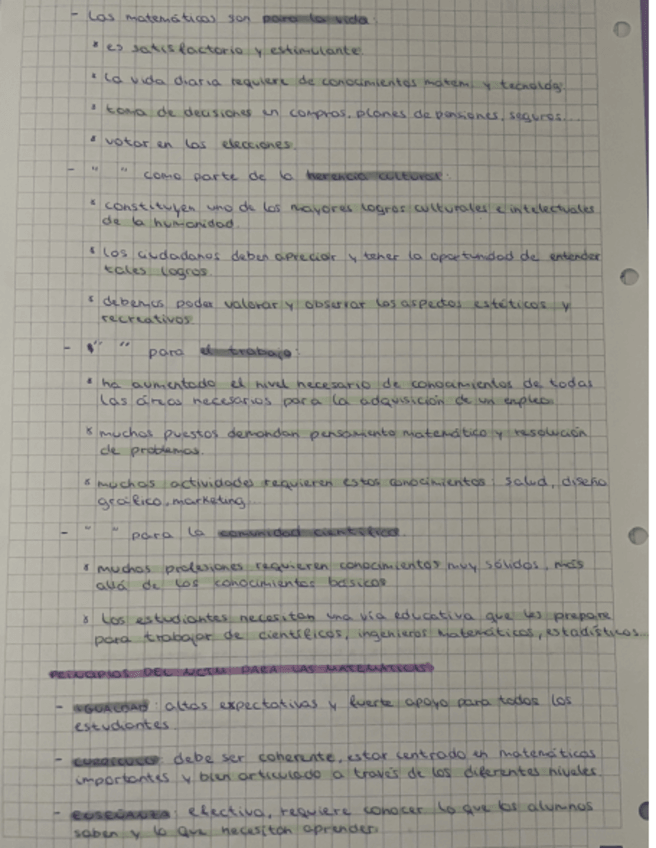 - Las matemáticas son para la vida:
* es satisfactorio y estimulante.
* la vida diaria requiere de conocimientos matem. y tecnológ.
* toma de decisiones en compras, planes de pensiones, seguros...
* votar en las elecciones.
- " " como parte de la herencia cultural:
* constituyen uno de los mayores logros culturales e intelectuales
de la humanidad.
* los ciudadanos deben apreciar y tener la oportunidad de entender
tales logros.
* debemos poder valorar y observar los aspectos estéticos y
recreativos.
- " " para el trabajo:
* ha aumentado el nivel necesario de conocimientos de todas
las áreas necesarios para la adquisición de un empleo.
* muchos puestos demandan pensamiento matemático y resolución
de problemas.
* muchas actividades requieren estos conocimientos: salud, diseño
gráfico, marketing.
- " " para la comunidad científica.
* muchas profesiones requieren conocimientos muy sólidos, más
allá de los conocimientos básicos
* los estudiantes necesitan una vía educativa que les prepare
para trabajar de científicos, ingenieros matemáticos, estadísticos.
PRINCIPIOS DEL NCTM PARA LAS MATEMÁTICAS
- IGUALDAD: altas expectativas y fuerte apoyo para todos los
estudiantes.
- CURRÍCULO: debe ser coherente, estar centrado en matemáticas
importantes y bien articulado a través de los diferentes niveles.
- ENSEÑANZA: efectiva, requiere conocer lo que los alumnos
saben y lo que necesitan aprender.